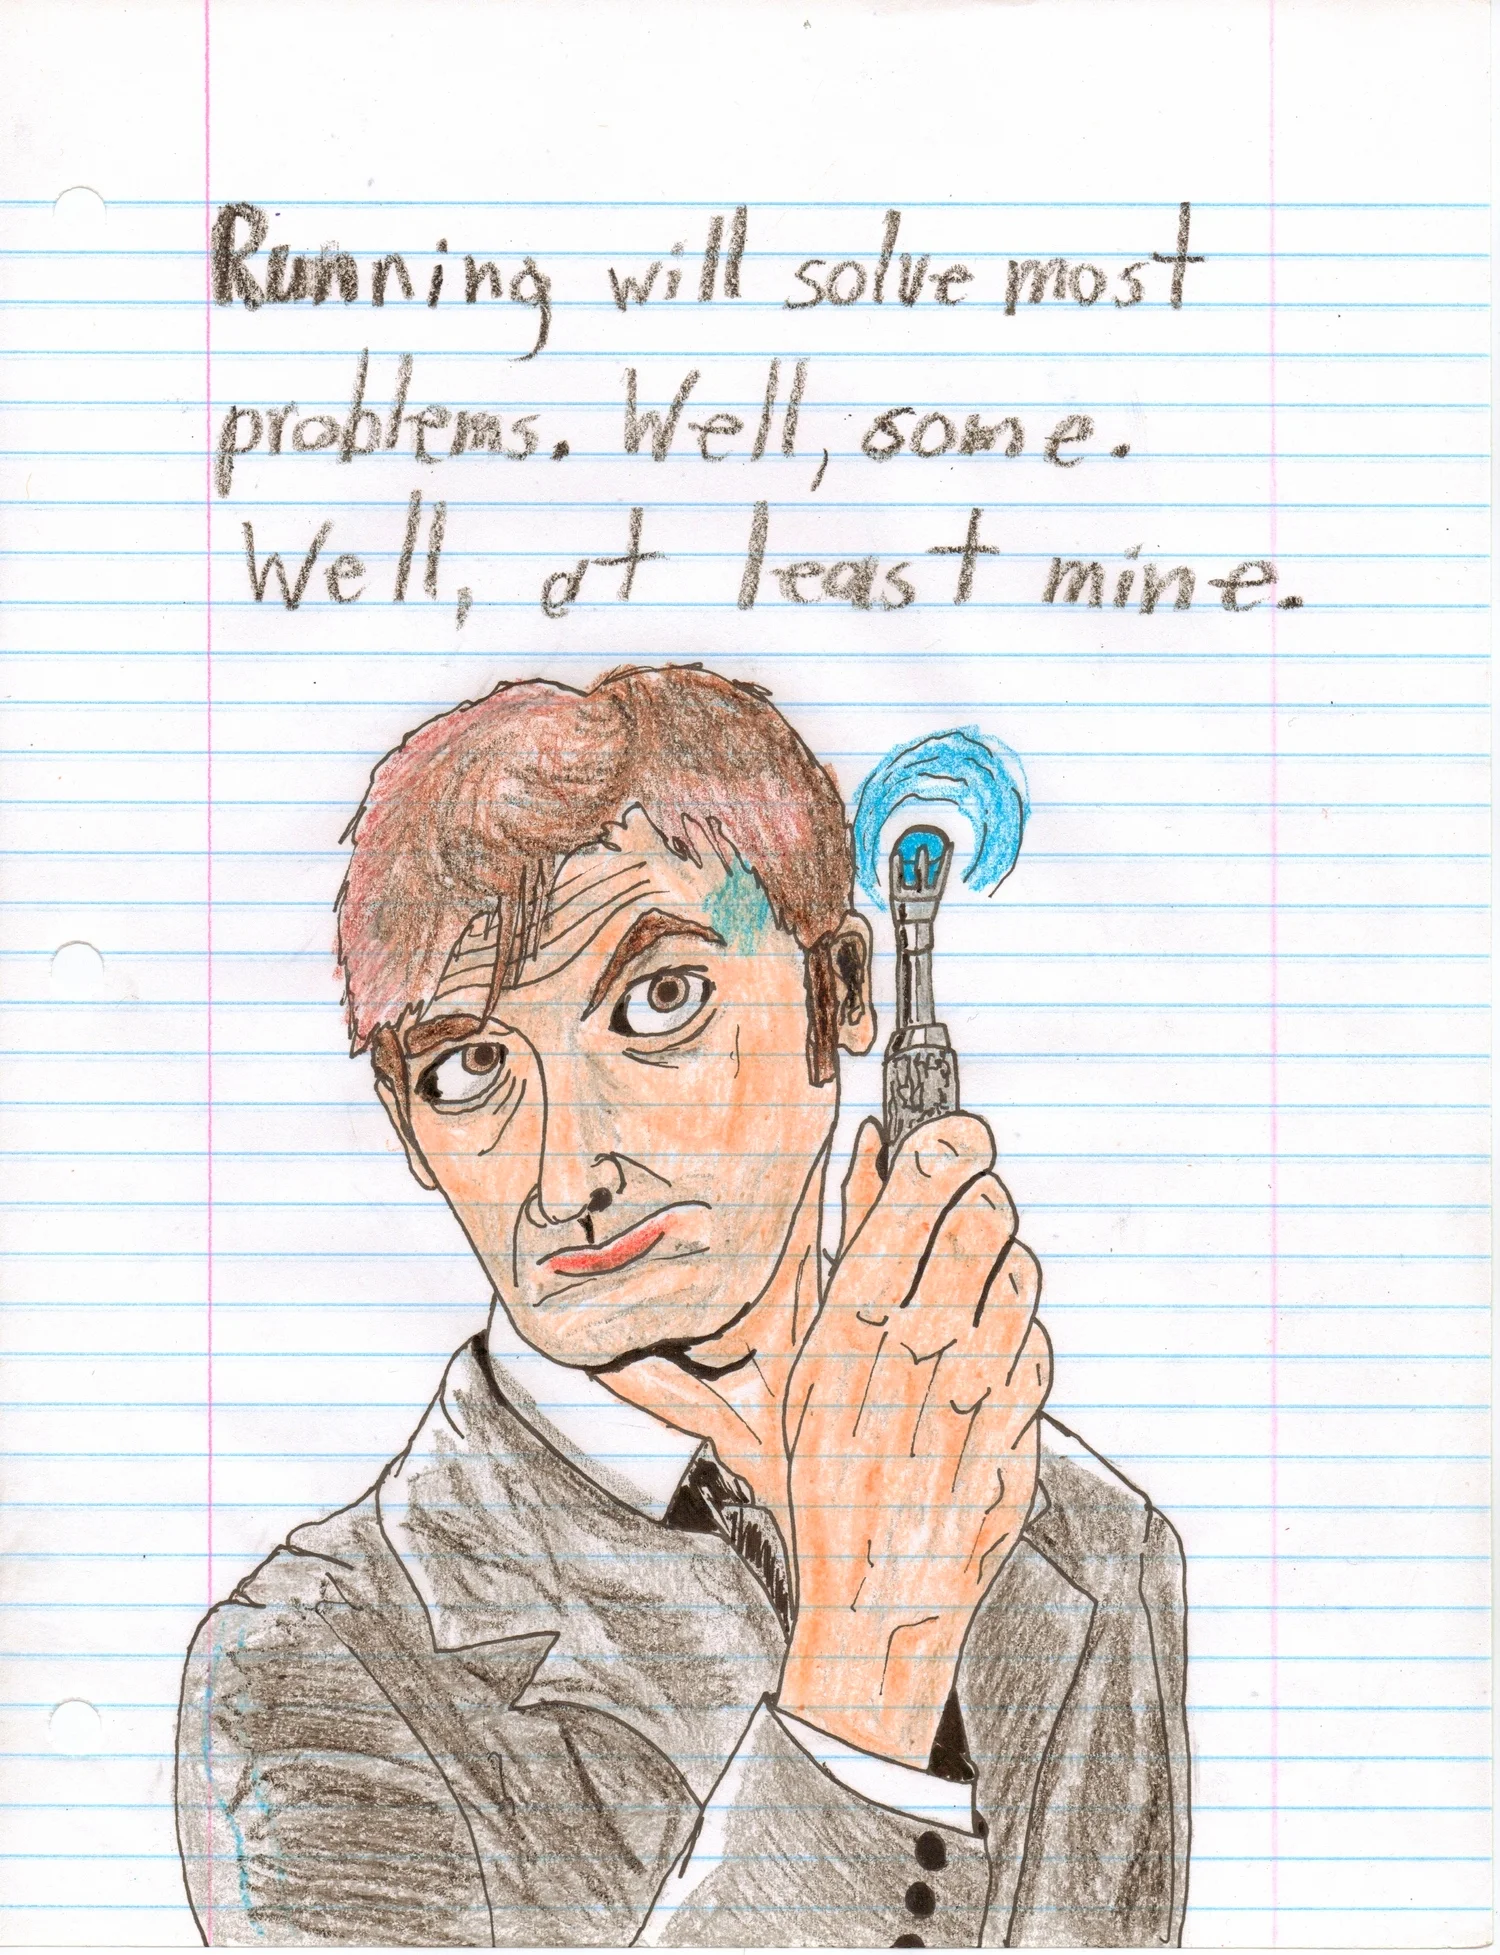 Running will solve most
problems. Well, some.
Well, at least mine.